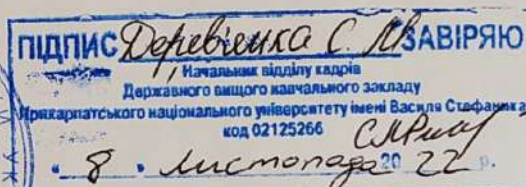 ПІДПИС Деревʼянка С. ЗАВІРЯЮ
Начальник відділу кадрів
Державного вищого навчального закладу
Прикарпатського національного університету імені Василя Стефаника
код 02125266
" 8 " листопада 20 22 р.